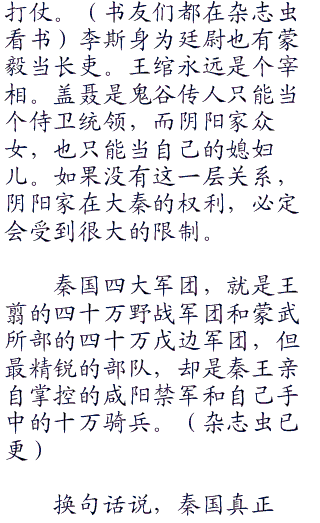 打仗。（书友们都在杂志虫
看书）李斯身为廷尉也有蒙
毅当长吏。王绾永远是个宰
相。盖聂是鬼谷传人只能当
个侍卫统领，而阴阳家众
女，也只能当自己的媳妇
儿。如果没有这一层关系，
阴阳家在大秦的权利，必定
会受到很大的限制。
秦国四大军团，就是王
翦的四十万野战军团和蒙武
所部的四十万戍边军团，但
最精锐的部队，却是秦王亲
自掌控的咸阳禁军和自己手
中的十万骑兵。（杂志虫已
更）
换句话说，秦国真正